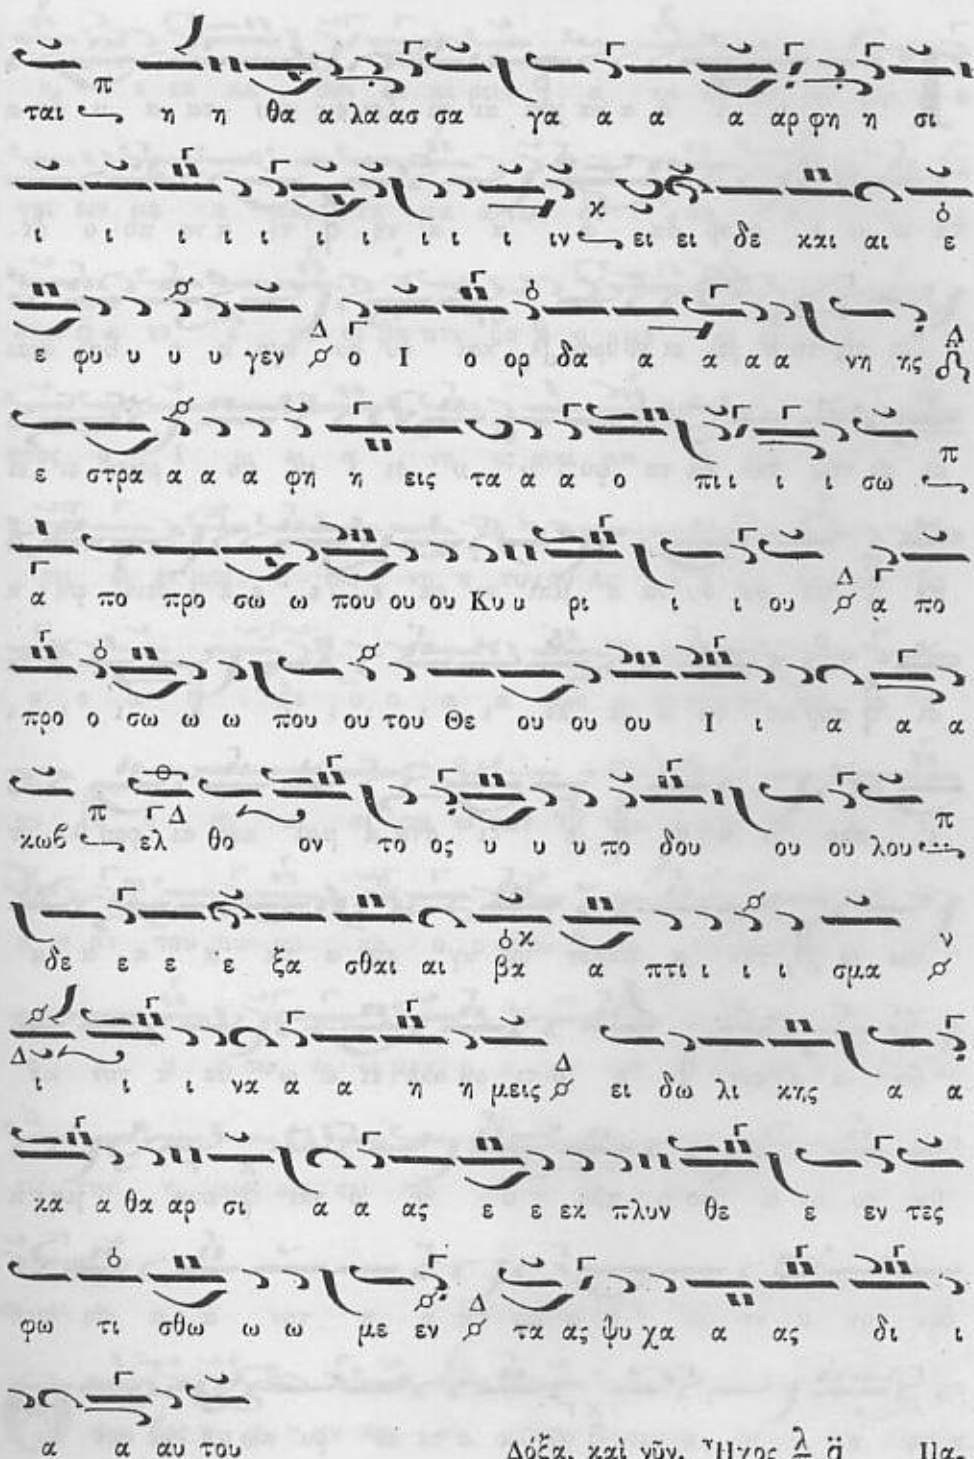 ται π η η θα α λα ασ σα γα α α α αρ φη η σι
ι ι ι ι ι ι ι ι ι ιν κ ει ει δε και αι ε
ε φυ υ υ υ γεν Δ ο Ι ο ορ δα α α α α νη ης Δ
ε στρα α α α φη η εις τα α α ο πι ι ι ι σω π
α πο προ σω ω που ου ου Κυ υ ρι ι ι ου Δ α πο
προ ο σω ω ω που ου του Θε ου ου ου Ι ι α α α
κωβ π ελ Δ θο ον το ος υ υ υ πο δου ου ου λου π
δε ε ε ε ξα σθαι αι βα κ α πτι ι ι ι σμα ν
Δ ι ι ι να α α η η μεις Δ ει δω λι κης α α
κα α θα αρ σι α α ας ε ε εκ πλυν θε ε εν τες
φω τι σθω ω ω με εν Δ τα ας ψυ χα α ας δι ι
α α αυ του
Δόξα, καὶ νῦν, Ἦχος λ π α̈ Πα-